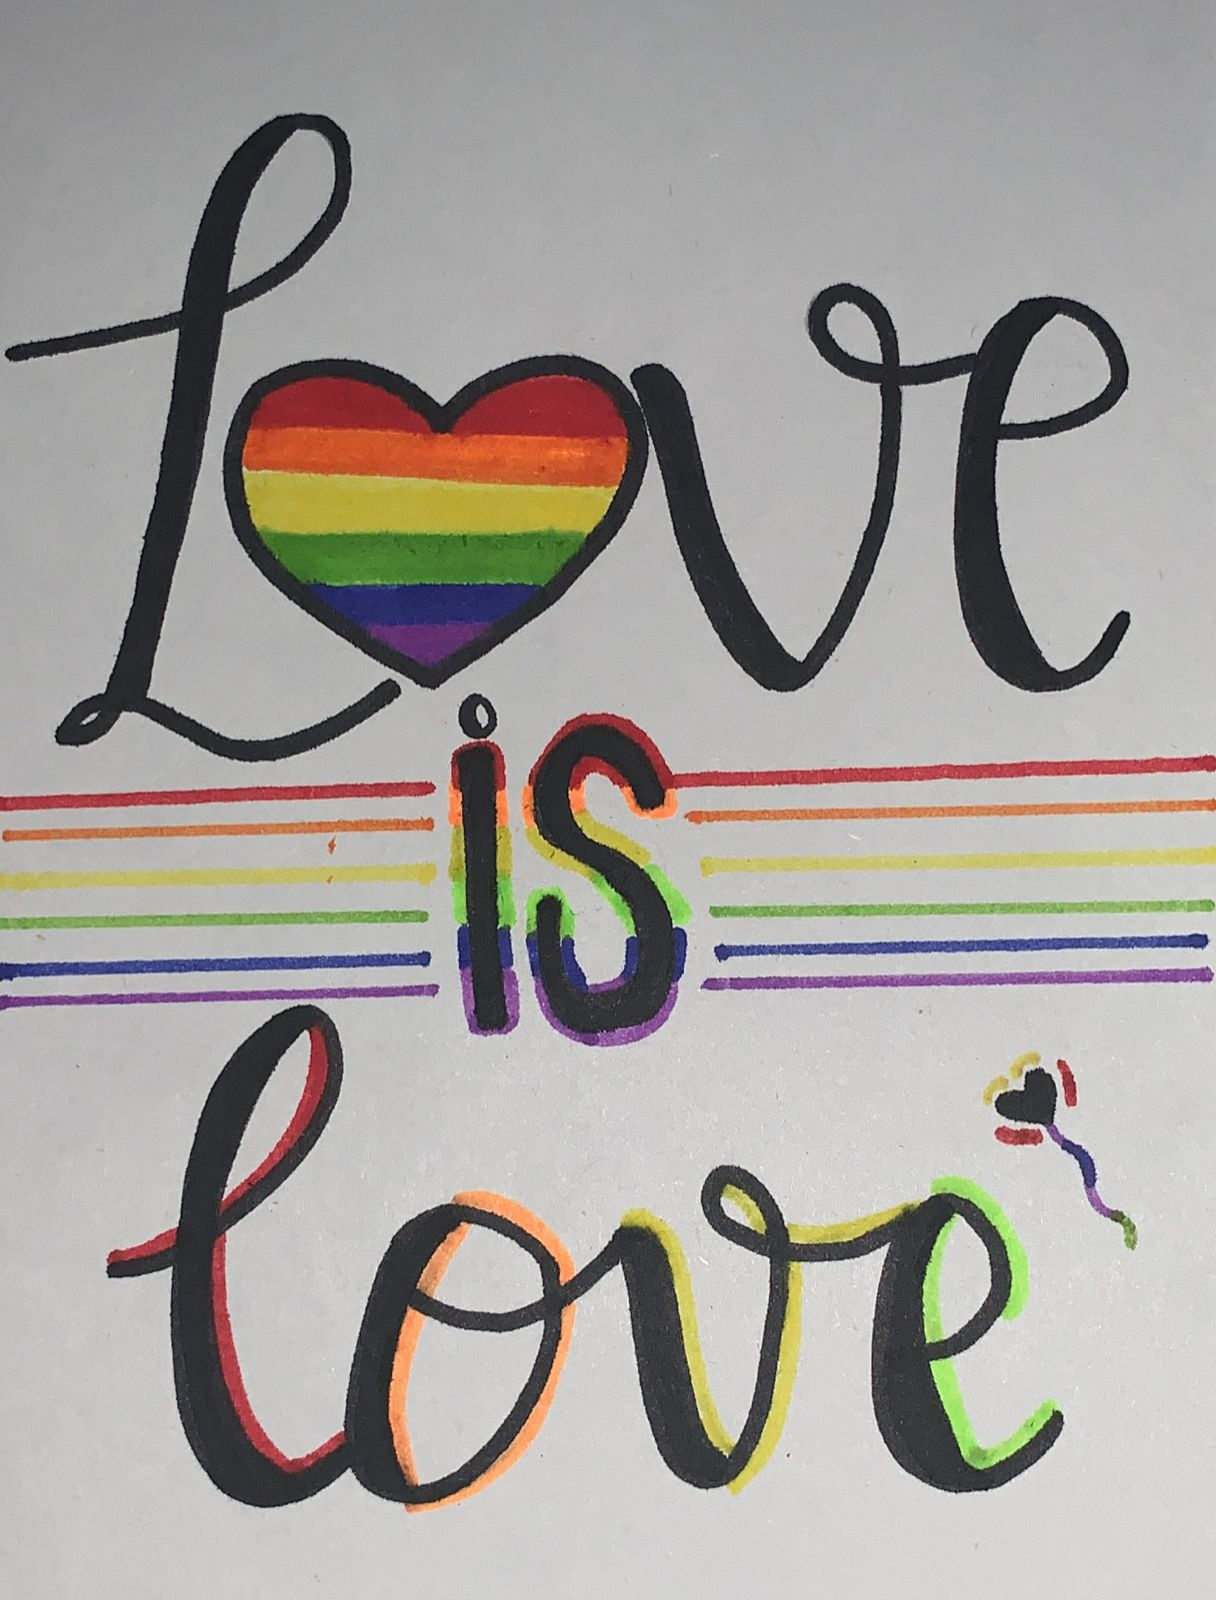 Love
is
love